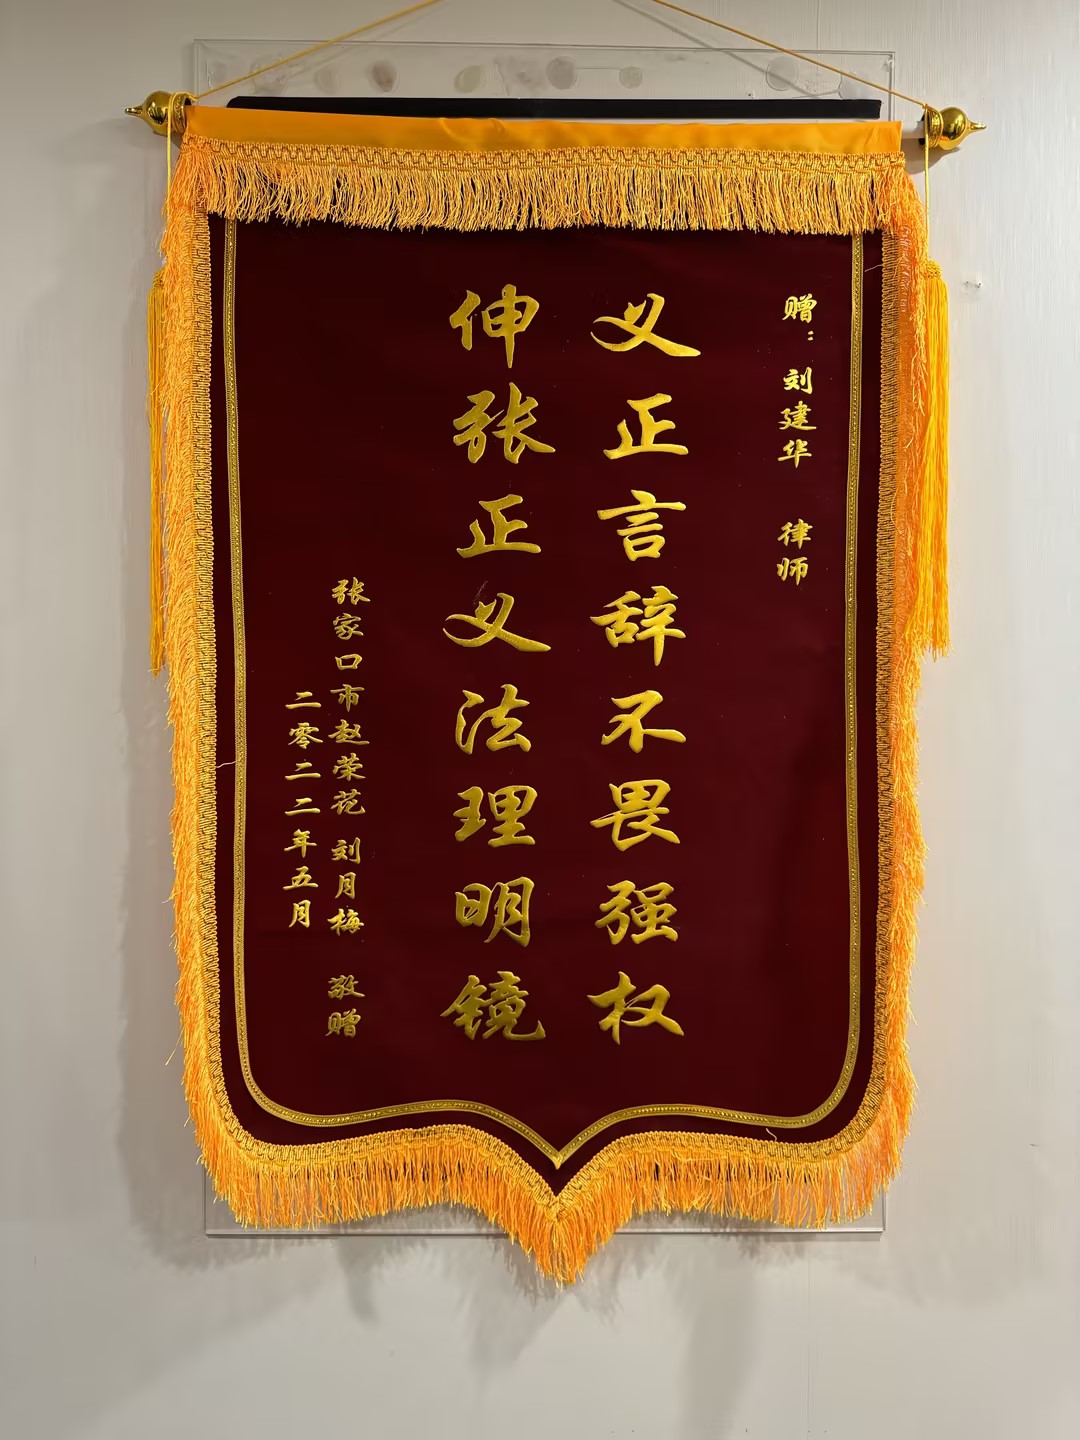 赠：刘建华 律师
义正言辞不畏强权
伸张正义法理明镜
张家口市赵荣花 刘月梅 敬赠
二零二二年五月